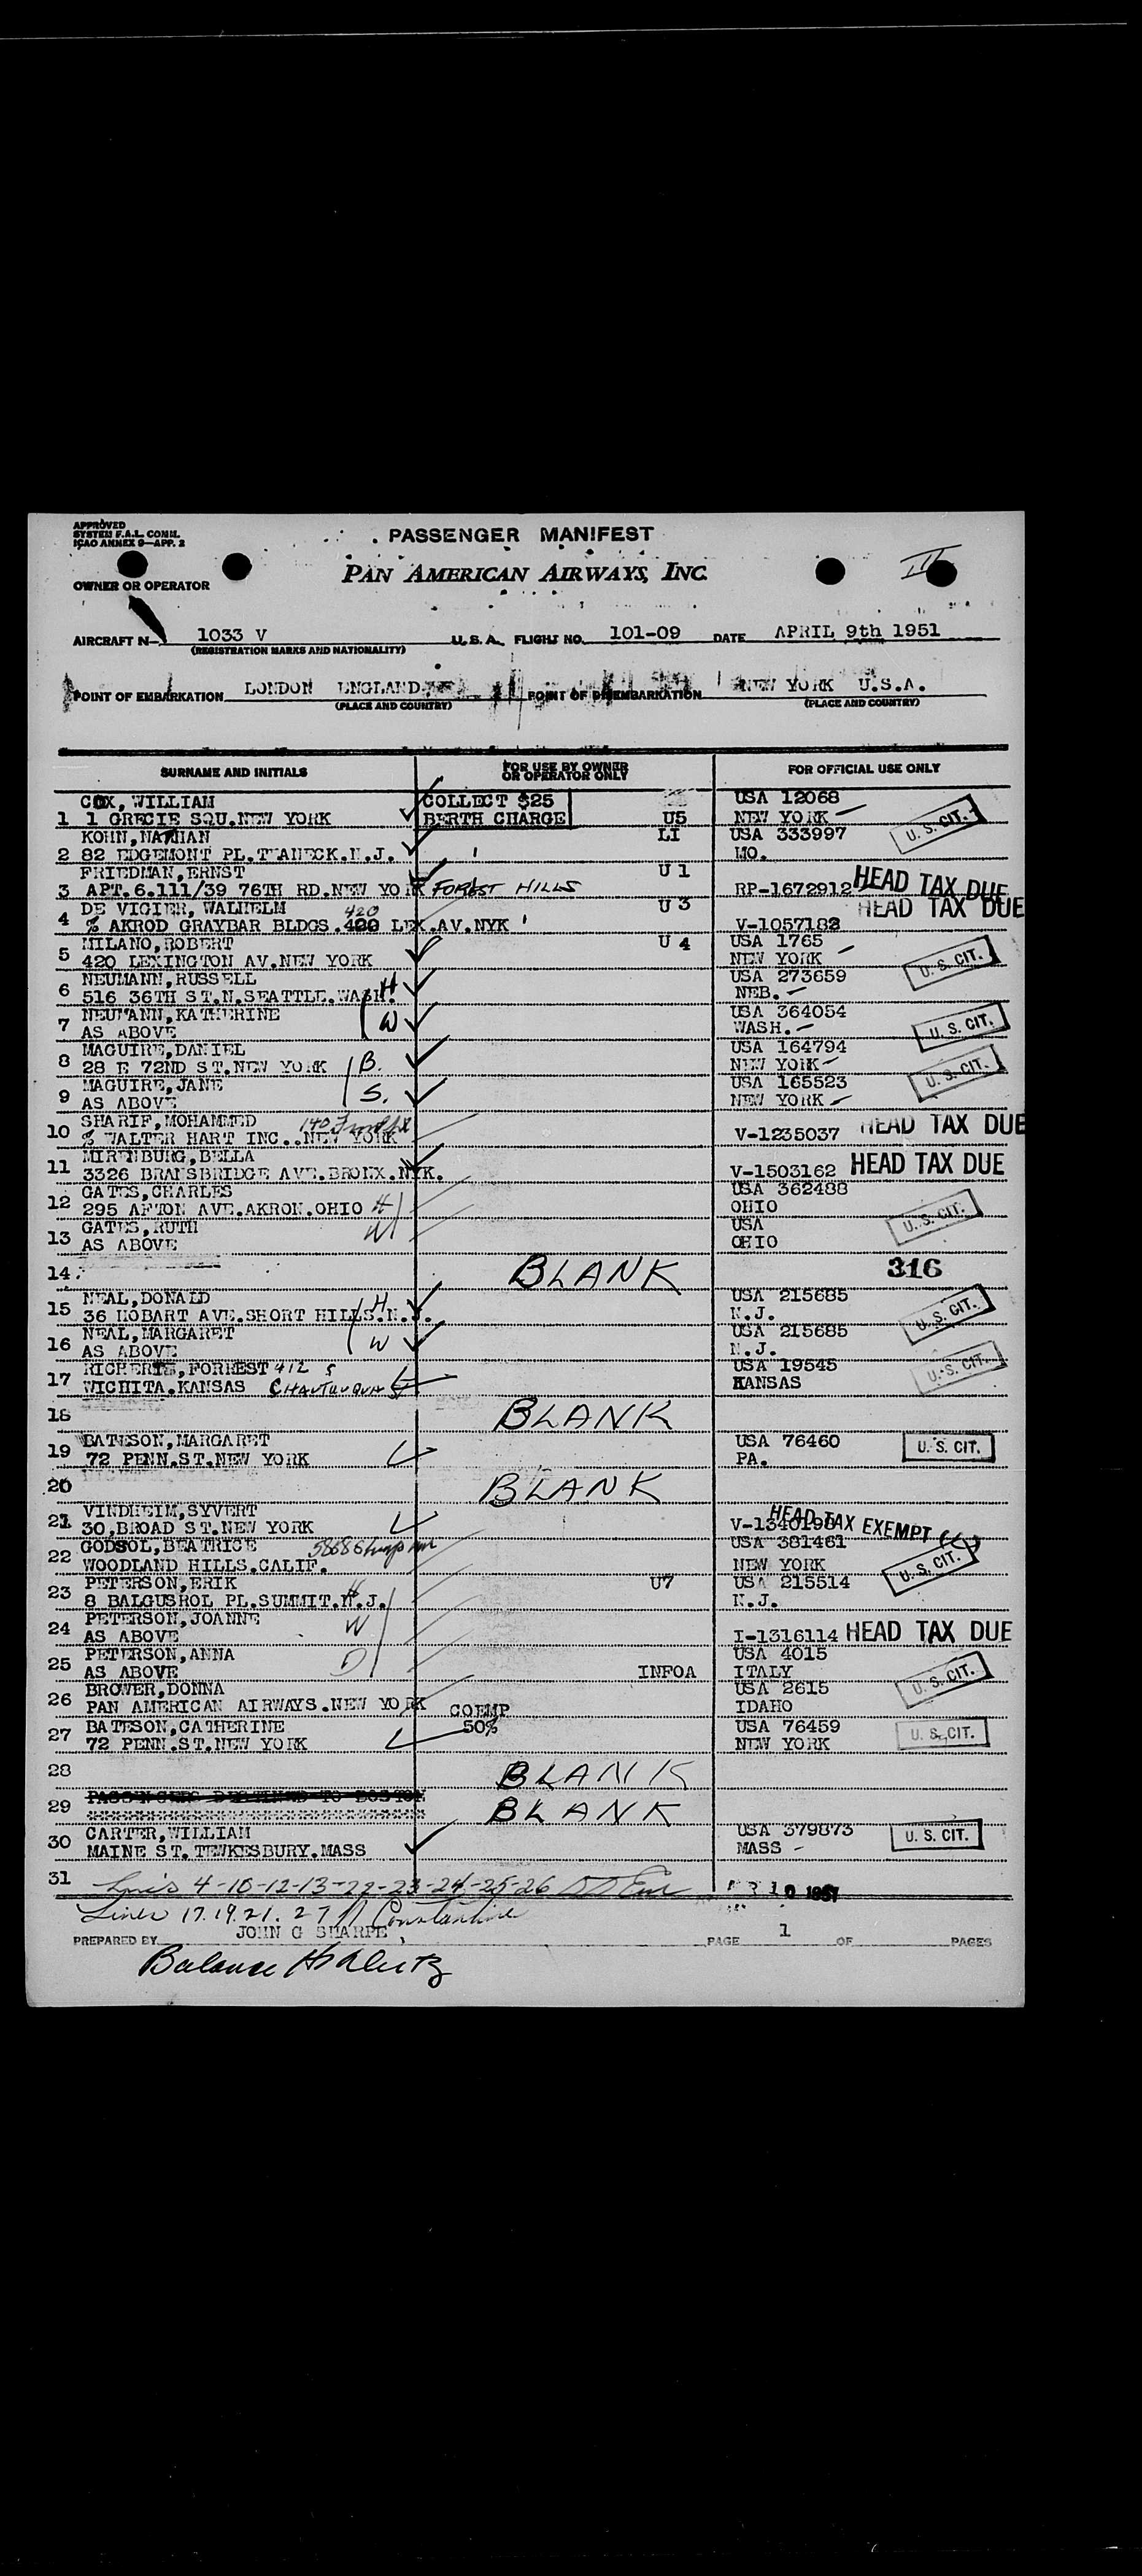 APPROVED
SYSTEM F.A.L. COMM.
ICAO ANNEX 9—APP. 2
PASSENGER MANIFEST
PAN AMERICAN AIRWAYS, INC.
II
OWNER OR OPERATOR
AIRCRAFT N— 1033 V U.S.A. FLIGHT NO. 101-09 DATE APRIL 9th 1951
(REGISTRATION MARKS AND NATIONALITY)
POINT OF EMBARKATION LONDON ENGLAND POINT OF DISEMBARKATION NEW YORK U.S.A.
(PLACE AND COUNTRY) (PLACE AND COUNTRY)
SURNAME AND INITIALS FOR USE BY OWNER OR OPERATOR ONLY FOR OFFICIAL USE ONLY
COX, WILLIAM COLLECT $25 USA 12068
1 1 GRECIE SQU.NEW YORK BERTH CHARGE U5 NEW YORK — U. S. CIT.
KOHN, NATHAN LI USA 333997
2 82 EDGEMONT PL.TEANECK.N.J. MO.
FRIEDMAN, ERNST U 1
3 APT.6.111/39 76TH RD.NEW YORK FOREST HILLS RP-1672912 HEAD TAX DUE
DE VIGIER, WALHELM 420 U 3 HEAD TAX DUE
4 % AKROD GRAYBAR BLDGS.420 LEX.AV.NYK V-1057182
MILANO, ROBERT U 4 USA 1765
5 420 LEXINGTON AV.NEW YORK NEW YORK — U. S. CIT.
NEUMANN, RUSSELL H USA 273659
6 516 36TH ST.N.SEATTLE.WASH. NEB. —
NEUMANN, KATHERINE W USA 364054
7 AS ABOVE WASH. — U. S. CIT.
MAGUIRE, DANIEL USA 164794
8 28 E 72ND ST.NEW YORK B. NEW YORK —
MAGUIRE, JANE USA 165523 U. S. CIT.
9 AS ABOVE S. NEW YORK —
SHARIF, MOHAMMED 140 Front St
10 % WALTER HART INC..NEW YORK V-1235037 HEAD TAX DUE
MIRENBURG, BELLA
11 3326 BRAISBRIDGE AVE.BRONX.NYK. V-1503162 HEAD TAX DUE
GATES, CHARLES USA 362488
12 295 AFTON AVE.AKRON.OHIO H OHIO U. S. CIT.
GATES, RUTH W USA
13 AS ABOVE OHIO
14. BLANK 316
NEAL, DONALD H USA 215685
15 36 HOBART AVE.SHORT HILLS.N.J. N.J. U. S. CIT.
NEAL, MARGARET W USA 215685
16 AS ABOVE N.J.
RICHERTS, FORREST 412 S USA 19545
17 WICHITA.KANSAS CHAUTAUQUA KANSAS U. S. CIT.
18 BLANK
BATESON, MARGARET USA 76460
19 72 PENN.ST.NEW YORK PA. U. S. CIT.
20 BLANK
VINDHEIM, SYVERT HEAD TAX EXEMPT
21 30,BROAD ST.NEW YORK V-1340198
GODSOL, BEATRICE USA 381461
22 WOODLAND HILLS.CALIF. NEW YORK U. S. CIT.
PETERSON, ERIK H U7 USA 215514
23 8 BALGUSROL PL.SUMMIT.N.J. N.J.
PETERSON, JOANNE W
24 AS ABOVE I-1316114 HEAD TAX DUE
PETERSON, ANNA D USA 4015
25 AS ABOVE INFOA ITALY U. S. CIT.
BROWER, DONNA USA 2615
26 PAN AMERICAN AIRWAYS.NEW YORK COEMP IDAHO
BATESON, CATHERINE 50% USA 76459
27 72 PENN.ST.NEW YORK NEW YORK U. S. CIT.
28 BLANK
PASSENGERS DESTINED TO BOSTON
29 BLANK
CARTER, WILLIAM USA 379873
30 MAINE ST. TEWKESBURY.MASS MASS — U. S. CIT.
31 Lines 4-10-12-13-22-23-24-25-26 APR 10 1951
Lines 17.19.21.27 Constantine
PREPARED BY JOHN G SHARPE PAGE 1 OF PAGES
Balance